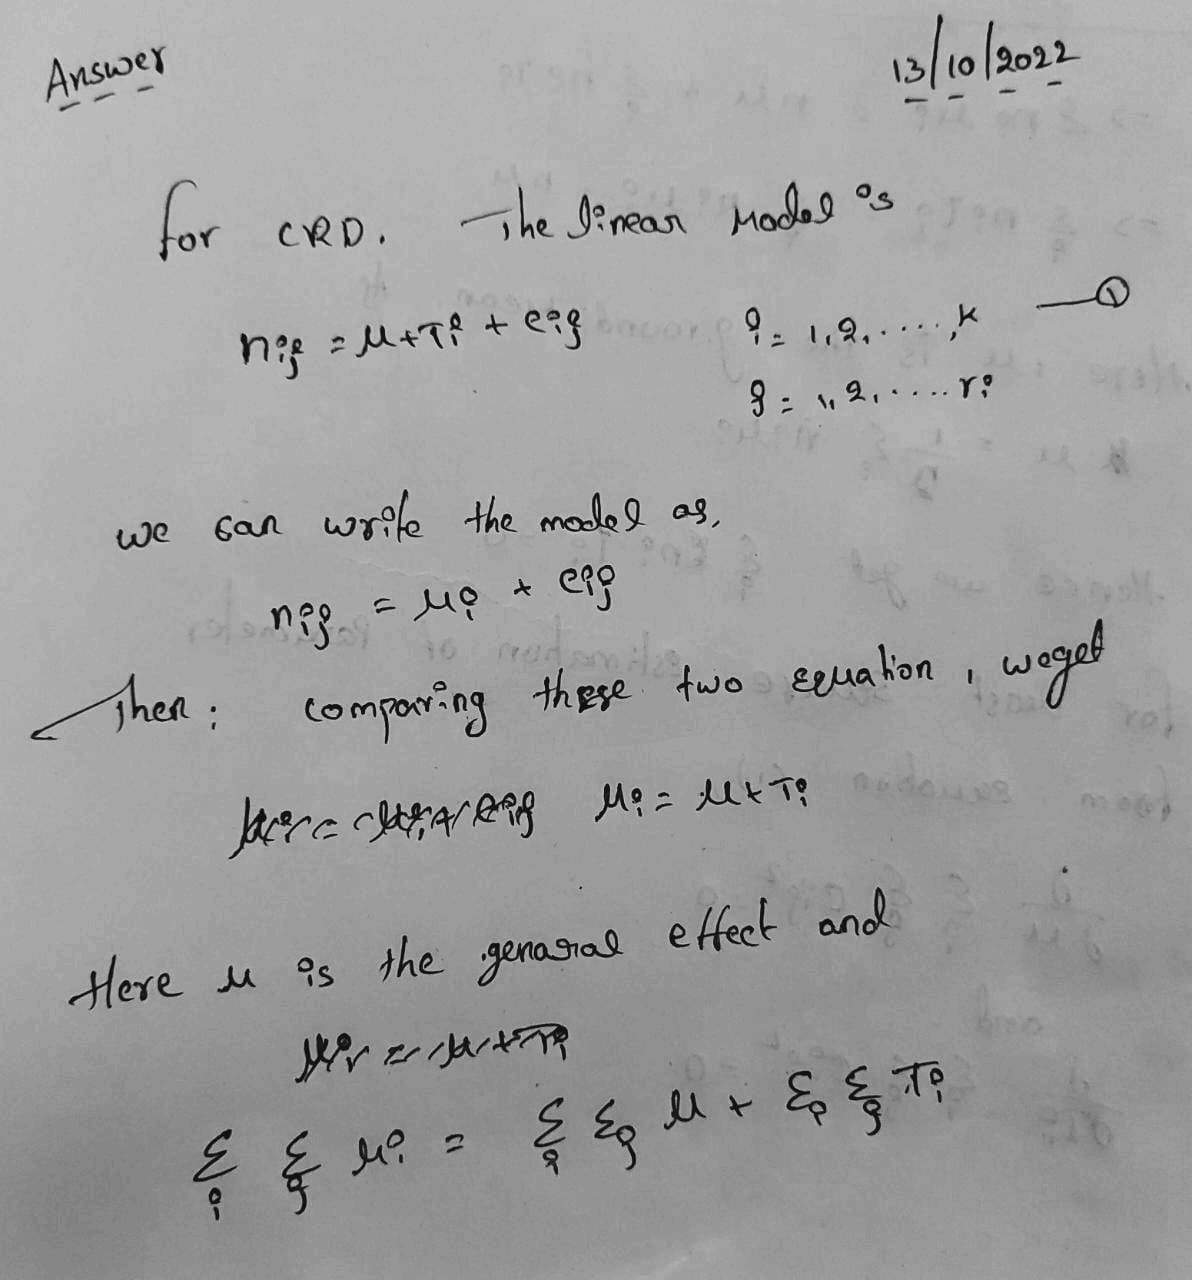 Answer
13/10/2022
for CRD. The linear Model is
nij = μ+Ti + eij i = 1,2,....,k —①
j = 1,2,.....ri
we can write the model as,
nij = μi + eij
Then; comparing these two equation, weget
μi = μ+Ti
Here μ is the genaral effect and
Σi Σj μi = Σi Σj μ + Σi Σj Ti